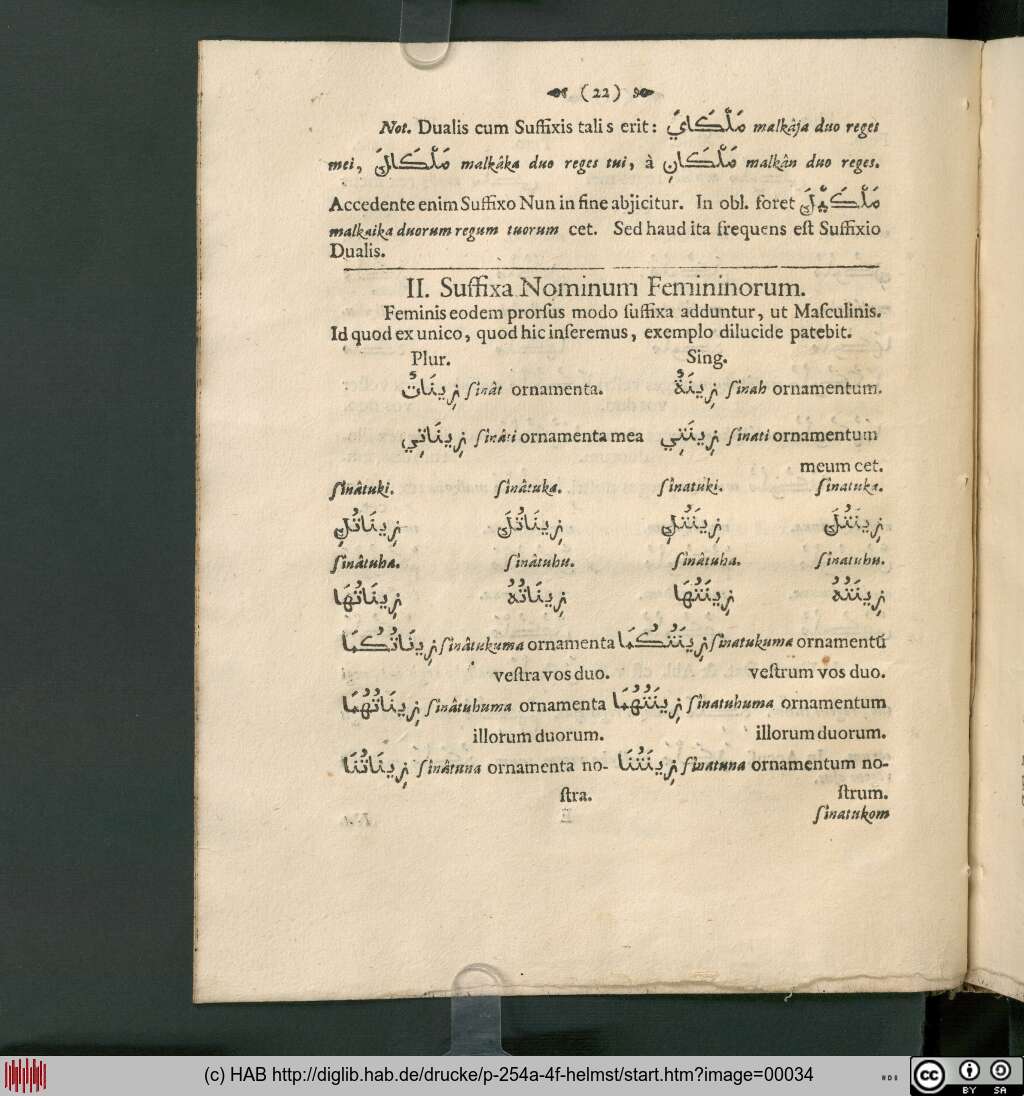 (22)
Not. Dualis cum Suffixis talis erit: مَلْكَايَ malkâja duo reges
mei, مَلْكَاكَ malkâka duo reges tui, à مَلْكَانِ malkân duo reges.
Accedente enim Suffixo Nun in fine abjicitur. In obl. foret مَلْكَيْكَ
malkaika duorum regum tuorum cet. Sed haud ita frequens eſt Suffixio
Dualis.
II. Suffixa Nominum Femininorum.
Feminis eodem prorſus modo ſuffixa adduntur, ut Maſculinis.
Id quod ex unico, quod hic inſeremus, exemplo dilucide patebit.
Plur. Sing.
زِينَاتٌ ſinât ornamenta. زِينَةٌ ſinah ornamentum.
زِينَاتِي ſinâti ornamenta mea زِينَتِي ſinati ornamentum
meum cet.
ſinâtuki. ſinâtuka. ſinatuki. ſinatuka.
زِينَاتُكِ زِينَاتُكَ زِينَتُكِ زِينَتُكَ
ſinâtuha. ſinâtuhu. ſinatuha. ſinatuhu.
زِينَاتُهَا زِينَاتُهُ زِينَتُهَا زِينَتُهُ
زِينَاتُكُمَا ſinâtukuma ornamenta زِينَتُكُمَا ſinatukuma ornamentũ
veſtra vos duo. veſtrum vos duo.
زِينَاتُهُمَا ſinâtuhuma ornamenta زِينَتُهُمَا ſinatuhuma ornamentum
illorum duorum. illorum duorum.
زِينَاتُنَا ſinâtuna ornamenta no- زِينَتُنَا ſinatuna ornamentum no-
ſtra. ſtrum.
ſinatukom
(c) HAB http://diglib.hab.de/drucke/p-254a-4f-helmst/start.htm?image=00034
cc BY SA